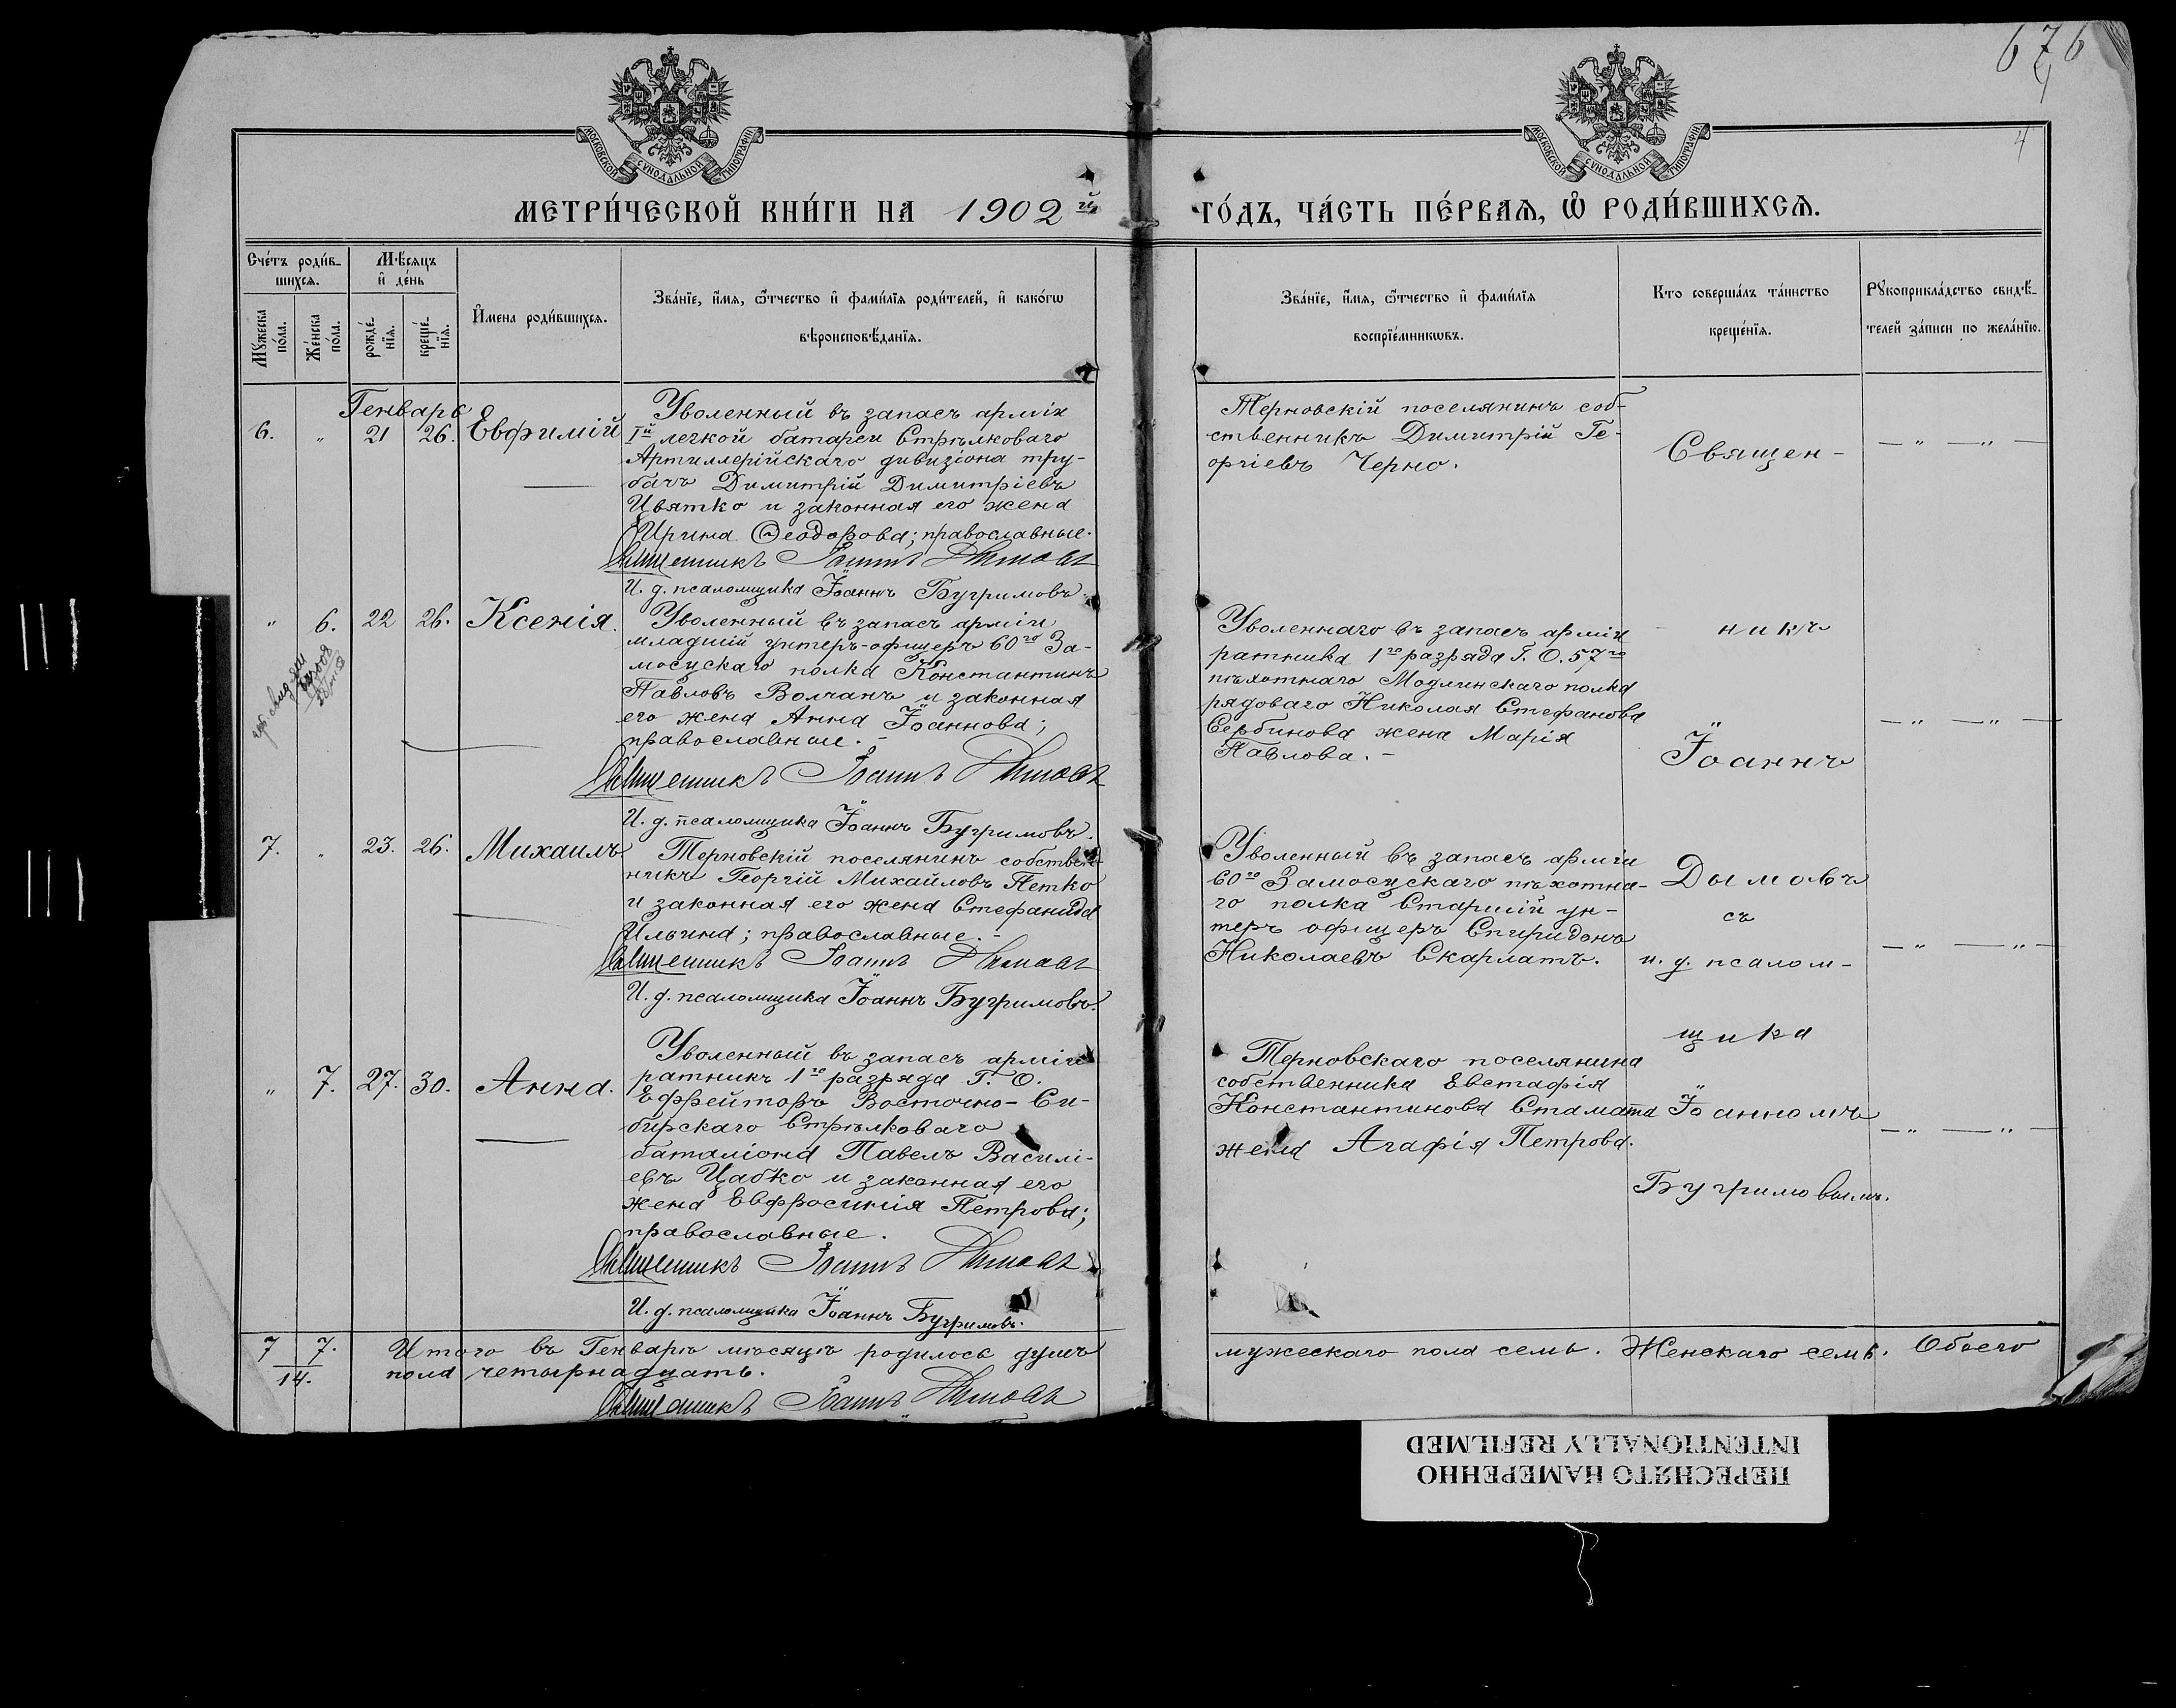 676
4
4
МОСКОВСКОЙ СѴНОДАЛЬНОЙ ТИПОГРАФІИ
МОСКОВСКОЙ СѴНОДАЛЬНОЙ ТИПОГРАФІИ
МЕТРИ́ЧЕСКОЙ КНИ́ГИ НА 1902й
ГО́ДЪ, ЧА́СТЬ ПЕ́РВАѦ, Ѡ҆ РОДИ́ВШИХСѦ.
Сче́тъ роди́в-
шихсѧ.
Мꙋ́жеска по́ла.
Же́нска по́ла.
Мѣ́сѧцъ
и҆ де́нь
рожде́-
нїѧ.
креще́-
нїѧ.
И҆мена роди́вшихсѧ.
Зва́нїе, и҆́мѧ, ѻ҆́тчество и҆ фами́лїѧ роди́телей, и҆ како́гѡ
вѣроисповѣ́данїѧ.
Зва́нїе, и҆́мѧ, ѻ҆́тчество и҆ фами́лїѧ
воспрїе́мникѡвъ.
Кто соверша́лъ та́инство
креще́нїѧ.
Рꙋкоприкла́дство свидѣ́-
телей за́писи по жела́нїю.
Генварь
6. " 21 26. Евфимій
Уволенный въ запасъ арміи
Iй легкой батареи Стрѣлковаго
Артиллерійскаго дивизіона тру-
бачъ Димитрій Димитріевъ
Цвятко и законная его жена
Ирина Ѳеодорова; православные.
Священникъ Іоаннъ Дымовъ
И. д. псаломщика Іоаннъ Бугримовъ.
Терновскій поселянинъ соб-
ственникъ Димитрій Ге-
оргіевъ Черно.
" 6. 22 26. Ксенія.
Уволенный въ запасъ арміи
младшій унтеръ-офицеръ 60го За-
мосцскаго полка Константинъ
Павловъ Волчанъ и законная
его жена Анна Іоаннова;
православные. -
Священникъ Іоаннъ Дымовъ
И. д. псаломщика Іоаннъ Бугримовъ.
Уволеннаго въ запасъ арміи
ратника 1го разряда Г. О. 57го
пѣхотнаго Модлинскаго полка
рядоваго Николая Стефанова
Сербинова жена Марія
Павлова. -
7. " 23. 26. Михаилъ.
Терновскій поселянинъ собствен-
никъ Георгій Михайловъ Петко
и законная его жена Стефанида
Ильина; православные. -
Священникъ Іоаннъ Дымовъ
И. д. псаломщика Іоаннъ Бугримовъ.
Уволенный въ запасъ арміи
60го Замосцскаго пѣхотна-
го полка Старшій ун-
теръ офицеръ Спиридонъ
Николаевъ Скарлатъ.
" 7. 27. 30. Анна.
Уволенный въ запасъ арміи
ратникъ 1го разряда Г. О.
Ефрейторъ Восточно-Си-
бирскаго Стрѣлковаго
баталіона Павелъ Василі-
евъ Цабко и законная его
жена Евфросинія Петрова;
православные.
Священникъ Іоаннъ Дымовъ
И. д. псаломщика Іоаннъ Бугримовъ.
Терновскаго поселянина
собственника Евстафія
Константинова Стамата
жена Агафія Петрова.
Священ-
никъ
Іоаннъ
Дымовъ
съ
и. д. псалом-
щика
Іоанномъ
Бугримовымъ.
7 7. Итого въ Генварѣ мѣсяцѣ родилось душъ мужескаго пола семь. Женскаго семь. Обоего
14. пола четырнадцать.
Священникъ Іоаннъ Дымовъ
ПЕРЕСНЯТО НАМЕРЕННО
INTENTIONALLY REFILMED